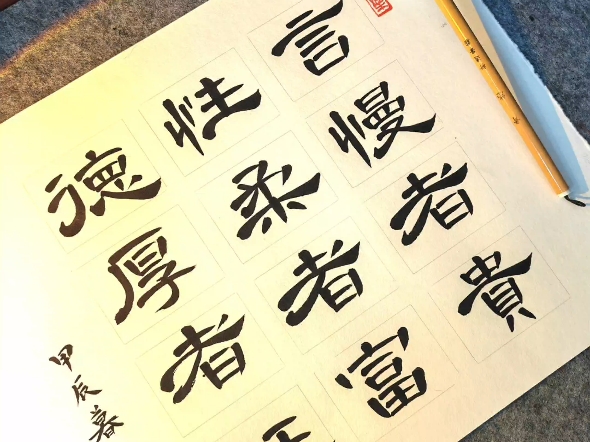 言慢者貴
性柔者富
德厚者
甲辰暮